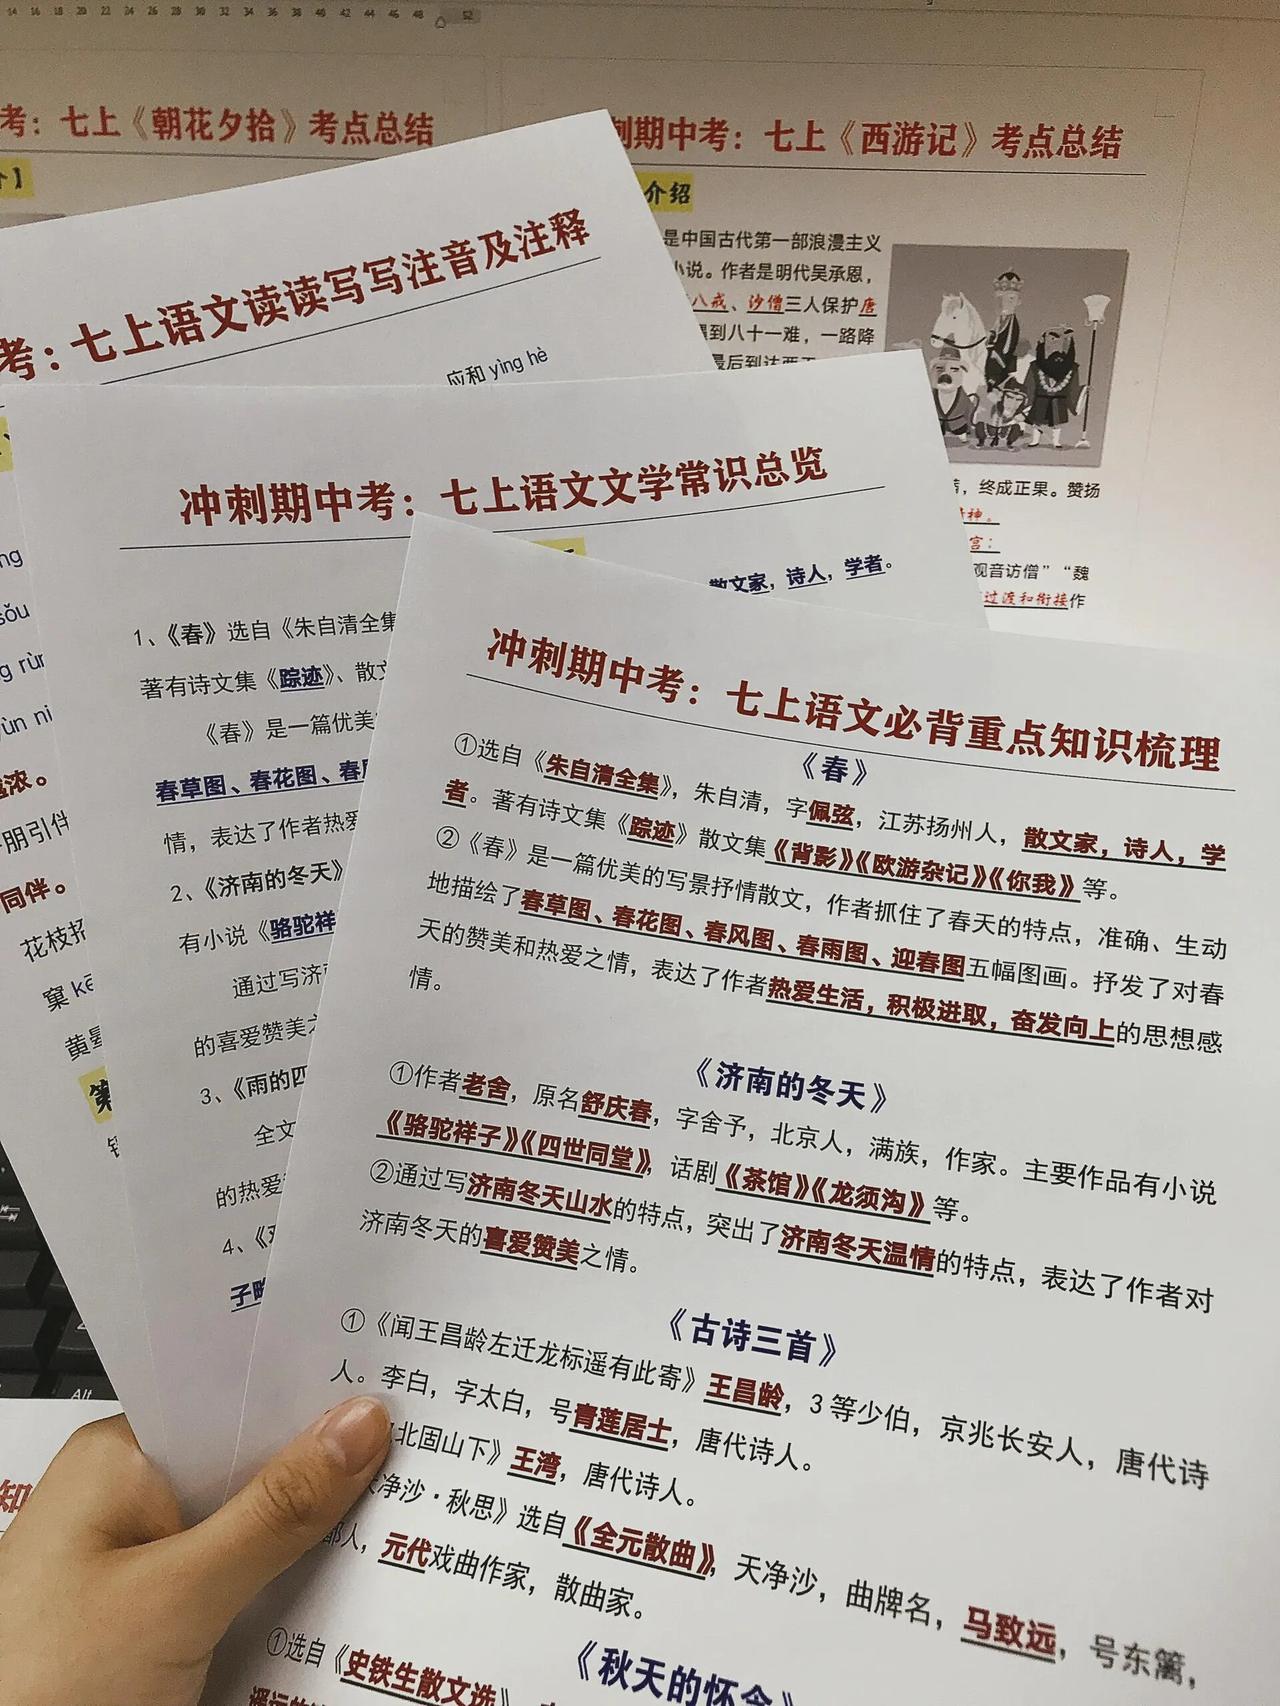 14 16 18 20 22 24 26 28 30 32 34 36 38 40 42 44 46 48 52
考：七上《朝花夕拾》考点总结
介】
刺期中考：七上《西游记》考点总结
介绍
是中国古代第一部浪漫主义
小说。作者是明代吴承恩，
八戒、沙僧三人保护唐
遇到八十一难，一路降
最后到达西天
满，终成正果。赞扬
精神。
宫：
观音访僧”“魏
过渡和衔接作
考：七上语文读读写写注音及注释
应和 yìng hè
sǒu
g rùn
同伴。
花枝招
窠 kē
冲刺期中考：七上语文文学常识总览
散文家，诗人，学者。
1、《春》选自《朱自清全集
著有诗文集《踪迹》、散文
《春》是一篇优美
春草图、春花图、春
情，表达了作者热爱
2、《济南的冬天》
有小说《骆驼祥
通过写济南
的喜爱赞美之
3、《雨的四
全文
的热爱
4、《
子
冲刺期中考：七上语文必背重点知识梳理
《春》
①选自《朱自清全集》，朱自清，字佩弦，江苏扬州人，散文家，诗人，学
者。著有诗文集《踪迹》散文集《背影》《欧游杂记》《你我》等。
②《春》是一篇优美的写景抒情散文，作者抓住了春天的特点，准确、生动
地描绘了春草图、春花图、春风图、春雨图、迎春图五幅图画。抒发了对春
天的赞美和热爱之情，表达了作者热爱生活，积极进取，奋发向上的思想感
情。
《济南的冬天》
①作者老舍，原名舒庆春，字舍予，北京人，满族，作家。主要作品有小说
《骆驼祥子》《四世同堂》，话剧《茶馆》《龙须沟》等。
②通过写济南冬天山水的特点，突出了济南冬天温情的特点，表达了作者对
济南冬天的喜爱赞美之情。
《古诗三首》
①《闻王昌龄左迁龙标遥有此寄》王昌龄，3等少伯，京兆长安人，唐代诗
人。李白，字太白，号青莲居士，唐代诗人。
北固山下》王湾，唐代诗人。
天净沙·秋思》选自《全元散曲》，天净沙，曲牌名，马致远，号东篱，
都人，元代戏曲作家，散曲家。
《秋天的怀念》
①选自《史铁生散文选》
Alt
知